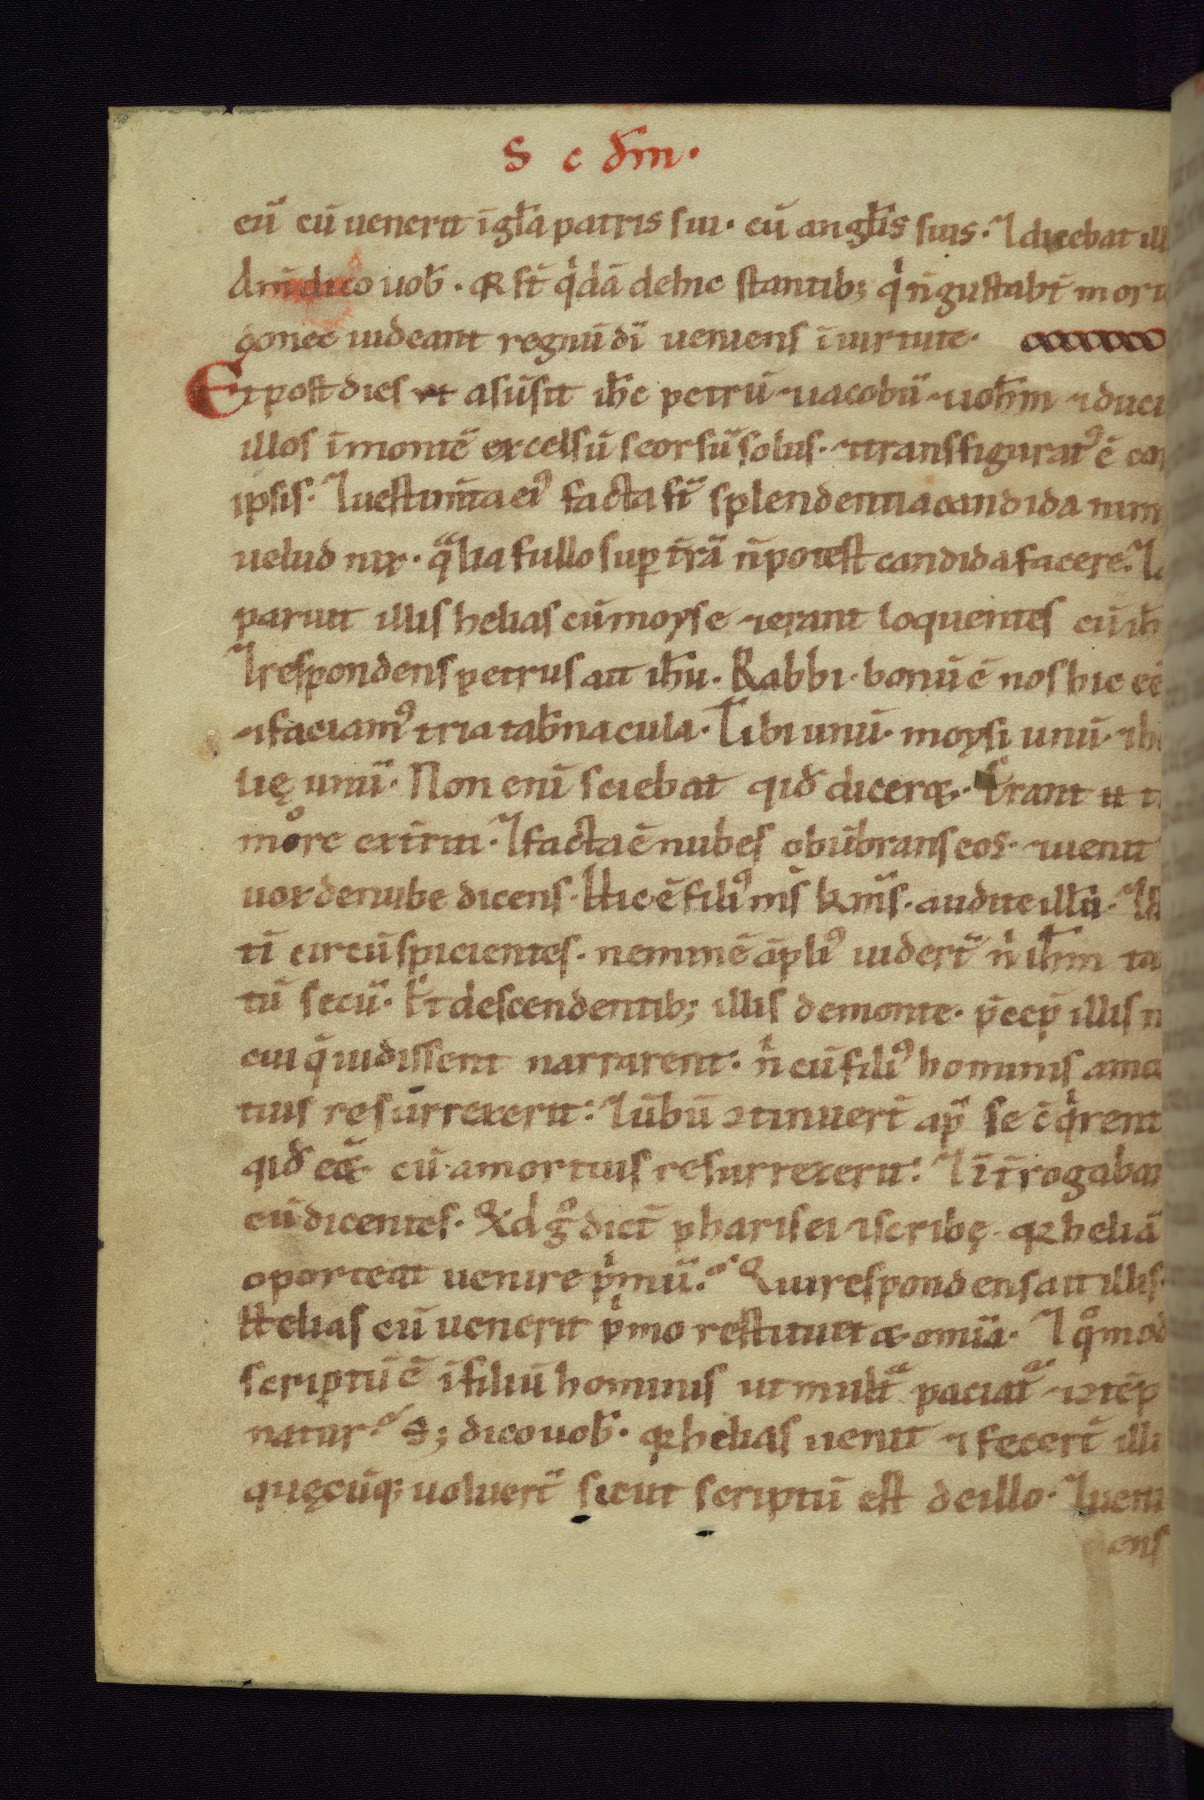 S c dm̄.
eū cū uenerit ī gl̄a patris sui. cū angl̄is suis. ⁊ dicebat ill
Am̄ dico uob̄. qꝛ st̄ qͥdā de hic stantib; qͥ n̄ gustabt̄ mort
donec uideant regnū dī ueniens ī uirtute.
Et post dies vi asūsit ih̄c petrū ⁊ iacobū ⁊ ioh̄m ⁊ duci
illos ī montē excelsū seorsū solus. ⁊ transfigurat᾽ ē cor
ipsis. ⁊ uestim̄ta ei᾽ facta st̄ splendentia candida nim
velud nix. qͣlia fullo sup̄ tr̄ā n̄ potest candida facere. ⁊ a
paruit illis helias cū moyse ⁊ erant loquentes cū ih̄
⁊ respondens petrus ait ih̄u. Rabbi. bonū ē nos hic eē
⁊ faciam᾽ tria tab̄nacula. Tibi unū. moysi unū. ⁊ he
lię unū. Non eni sciebat qid̄ diceræ. Erant
more ext̄riti. ⁊ facta ē nubes obūbrans eos. ⁊ uenit
uox de nube dicens. Hic ē fili᾽ ms̄ km̄s. audite illū. ⁊
ti circūspicientes. neminē āpli᾽ uidert̄ nͥ ih̄m ta
tū secū. Et descendentib; illis de monte. p̄cep̄ illis n
cui q̄ uidissent narrarent. nͥ cū fili᾽ hominis a mo
tuis resurrexerit. ⁊ ūbū ꝯtinuert̄ ap̄ se ꝯqͥrent
qid̄ eēt. cū a mortuis resurrexerit. ⁊ īt̄rogaban
eū dicentes. Qͥd gͦ dict̄ pharisei ⁊ scribę. qꝛ heliā
oporteat uenire pͥmū. Qui respondens ait illis.
Helias cū uenerit pͥmo restituet omīa. ⁊ qͦmod
scriptū ē ī filiū hominis ut multͣ paciatͬ ⁊ ꝯtēp
natur. S; dico uob̄. qꝛ helias uenit ⁊ fecert̄ illi
quęcūq; uoluert̄ sicut scriptū est de illo. ⁊ ueni
ens